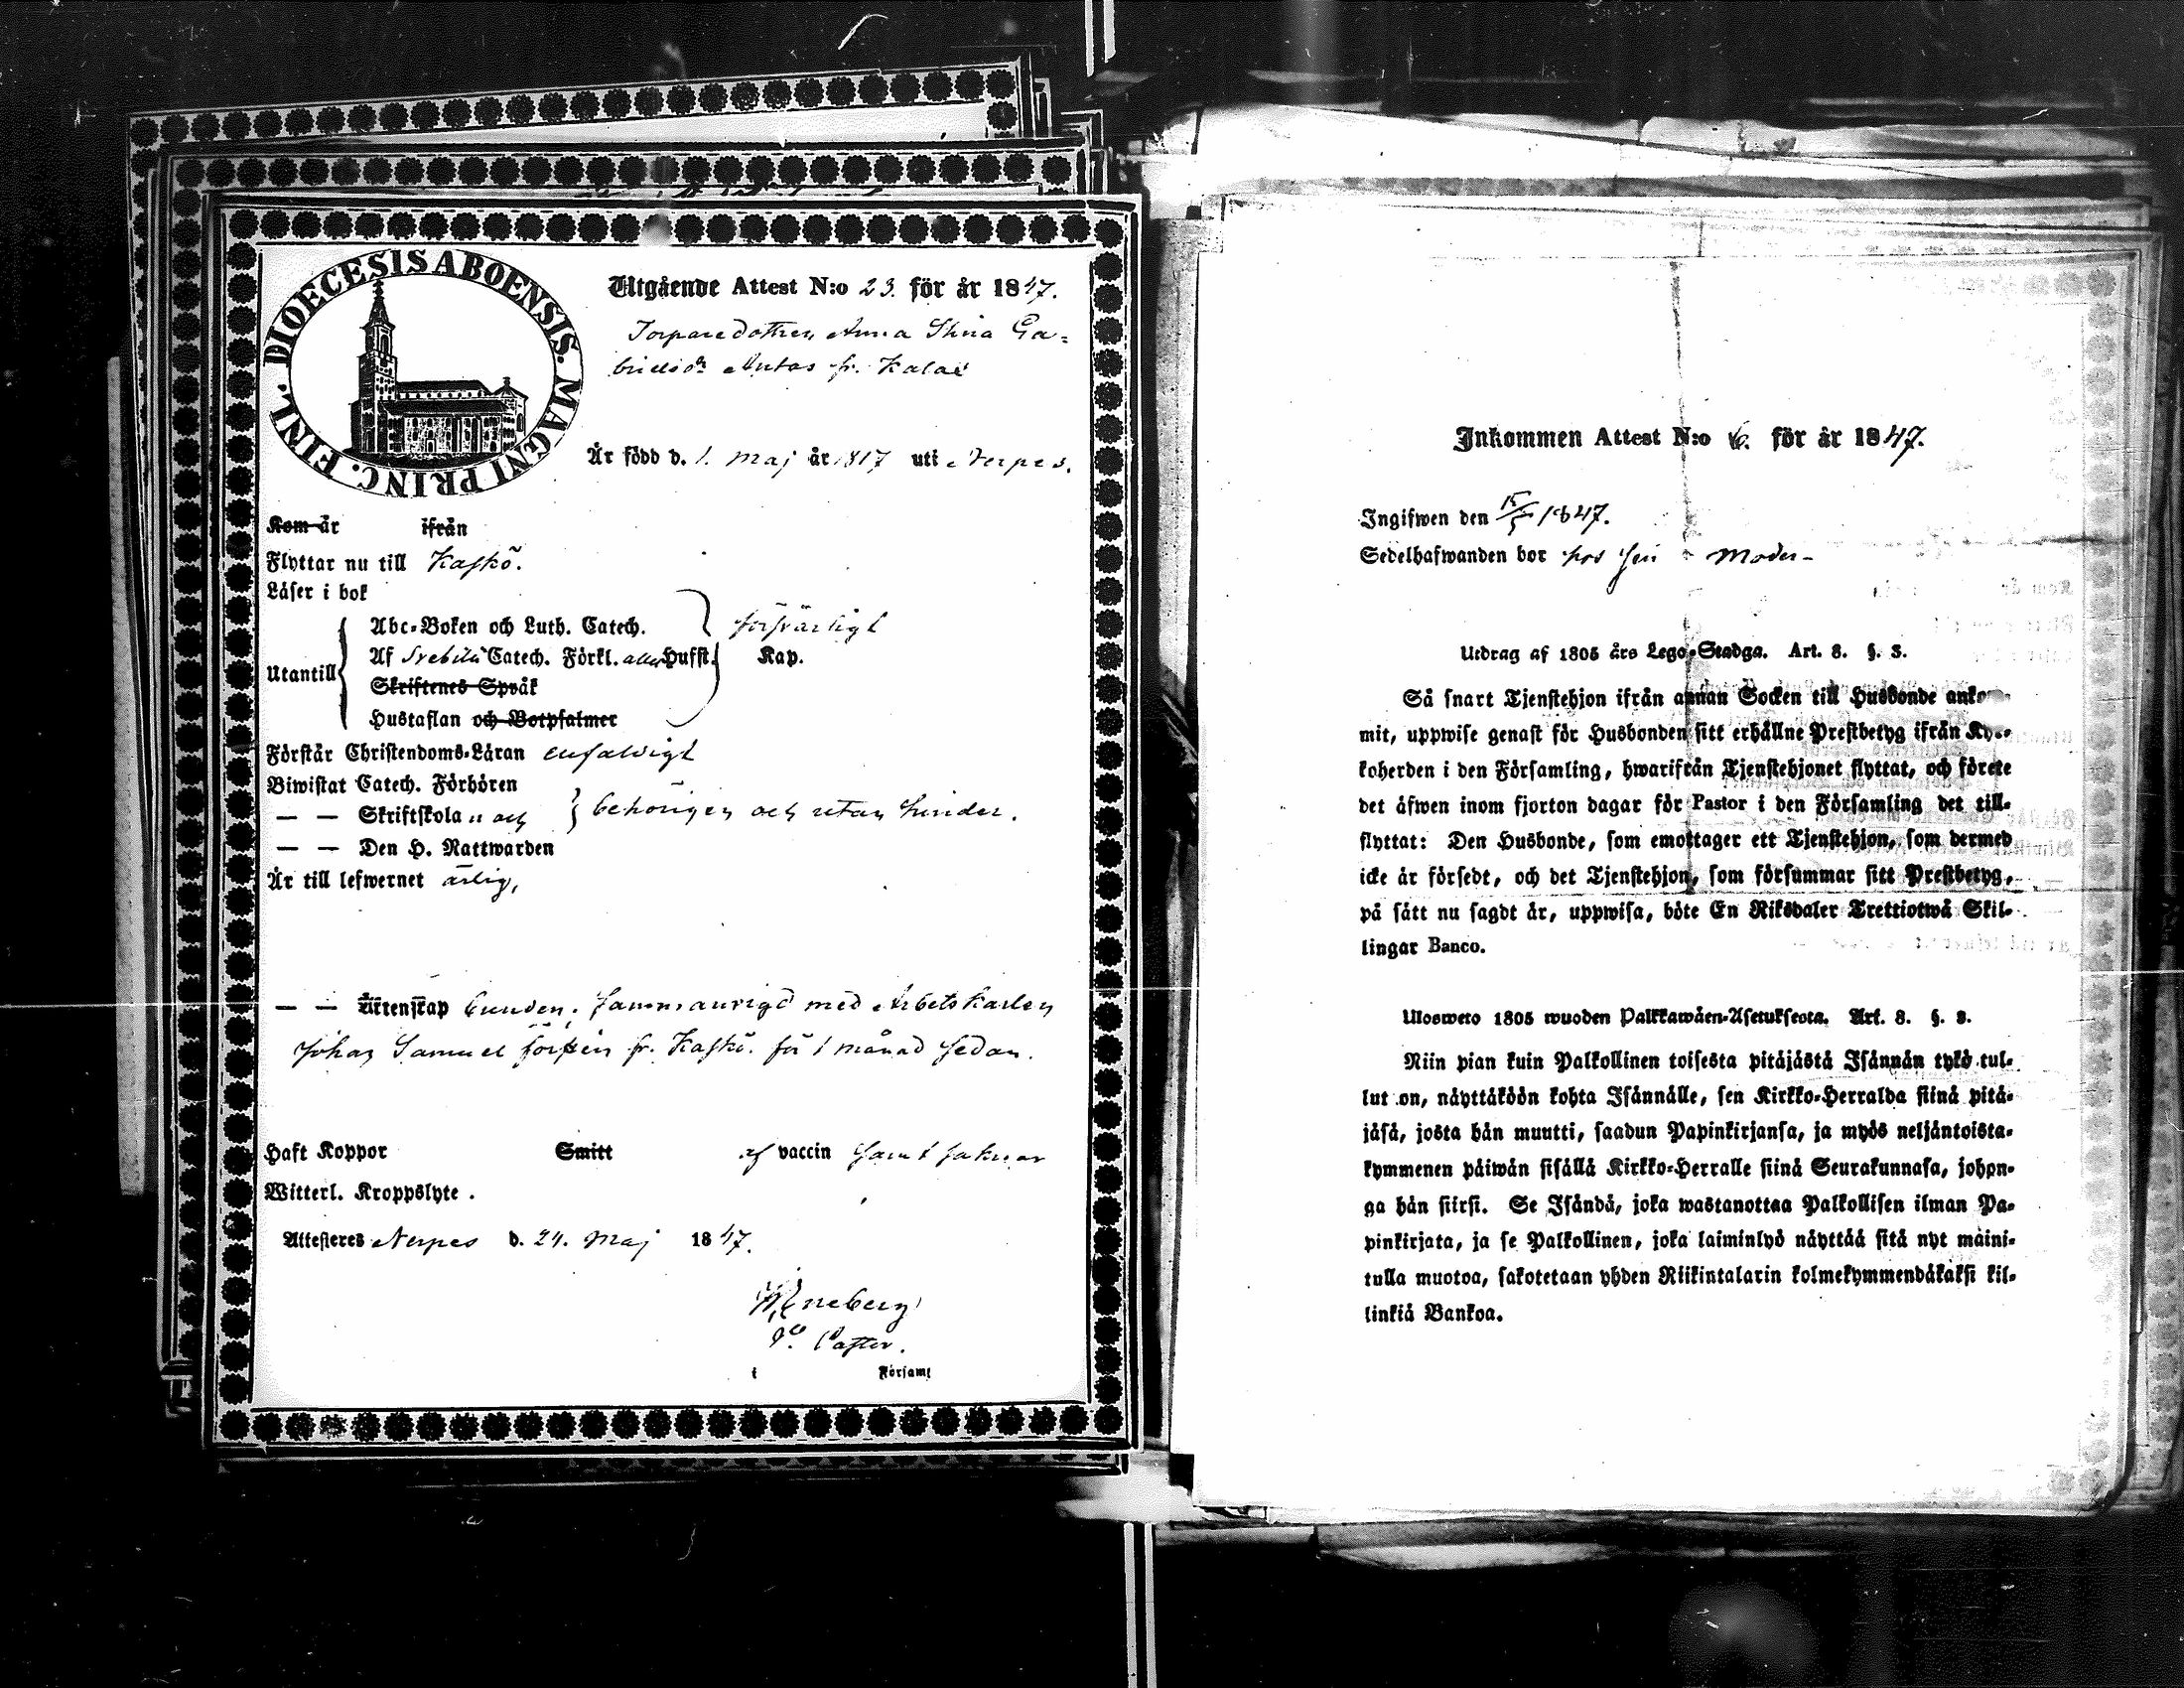 DIOECESIS ABOENSIS. MAGNI PRINC. FINL.
Utgående Attest N:o 23. för år 1847.
Torparedottren Anna Stina Ga-
brielsdr Antas fr. Kalax
Är född d. 1. Maj år 1817 uti Nerpes.
Kom år ifrån
Flyttar nu till Kaskö.
Läser i bok
Abc-Boken och Luth. Catech. försvarligt
Utantill
Af Svebilii Catech. Förkl. alla Hufst. Kap.
Skriftenes Språk
Hustaflan och Botpsalmer
Förstår Christendoms-Läran enfaldigt
Biwistat Catech. Förhören
— — Skriftskola och behörigen och utan hinder.
— — Den H. Nattwarden
Är till lefwernet ärlig,
— — Äktenskap bunden; sammanvigd med Arbetskarlen
Johan Samuel fr. Kaskö. för 1 månad sedan.
Haft Koppor Smitt af vaccin samt
Witterl. Kroppslyte .
Attesteres Nerpes d. 24. Maj 1847.
Pastor.
i Församl
Inkommen Attest N:o 6. för år 1847.
Ingifwen den 1847.
Sedelhafwanden bor hos sin Moder
Utdrag af 1805 års Lego-Stadga. Art. 8. §. 3.
Så snart Tjenstehjon ifrån annan Socken till Husbonde anko-
mit, uppwise genast för Husbonden sitt erhållne Prestbetyg ifrån Ky-
koherden i den Församling, hwarifrån Tjenstehjonet flyttat, och förete
det äfwen inom fjorton dagar för Pastor i den Församling det till-
flyttat: Den Husbonde, som emottager ett Tjenstehjon, som dermed
icke är försedt, och det Tjenstehjon, som försummar sitt Prestbetyg,
på sätt nu sagdt är, uppwisa, böte En Riksdaler Trettiotwå Skil-
lingar Banco.
Ulosweto 1805 wuoden Palkkawäen-Asetuksesta. Art. 8. §. 3.
Niin pian kuin Palkollinen toisesta pitäjästä Isännän tykö tul-
lut on, näyttäköön kohta Isännälle, sen Kirkko-Herralda siinä pitä-
jäsä, josta hän muutti, saadun Papinkirjansa, ja myös neljäntoista-
kymmenen päiwän sisällä Kirkko-Herralle siinä Seurakunnasa, johon-
ga hän siirsi. Se Isändä, joka wastanottaa Palkollisen ilman Pa-
pinkirjata, ja se Palkollinen, joka laiminlyö näyttää sitä nyt maini-
tulla muotoa, sakotetaan yhden Riikintalarin kolmekymmendäkaksi kil-
linkiä Bankoa.